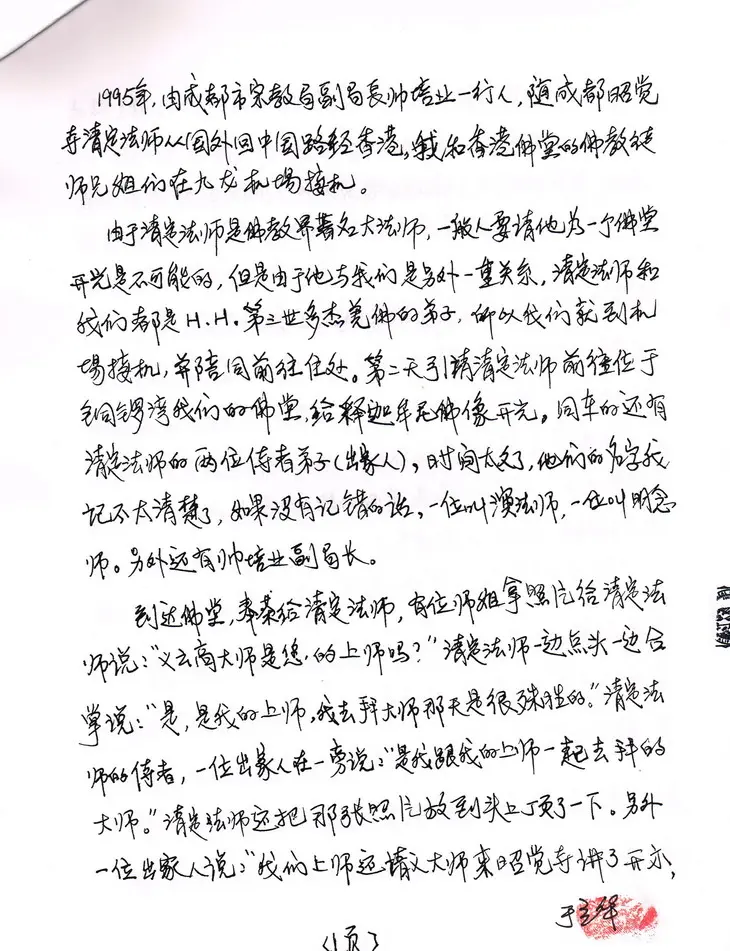 1995年，由成都市宗教局副局長帅培业一行人，随成都昭觉
寺清定法师从国外回中国路经香港，我和香港佛堂的佛教徒
师兄姐们在九龙机場接机。
由于清定法师是佛教界著名大法师，一般人要请他为一个佛堂
开光是不可能的，但是由于他与我们是另外一重关系，清定法师和
我们都是H.H.第三世多杰羌佛的弟子，所以我们就到机
場接机，并陪同前往住处。第二天引请清定法师前往位于
铜锣湾我们的佛堂，给释迦牟尼佛像开光。同车的还有
清定法师的两位侍者弟子（出家人），时间太久了，他们的名字我
记不太清楚了，如果没有记错的话，一位叫演法师，一位叫明念
师。另外还有帅培业副局长。
到达佛堂，奉茶给清定法师，有位师姐拿照片给清定法
师说：“义云高大师是您的上师吗？”清定法师一边点头一边合
掌说：“是，是我的上师，我去拜大师那天是很殊胜的。”清定法
师的侍者，一位出家人在一旁说：“是我跟我的上师一起去拜的
大师。”清定法师还把那张照片放到头上顶了一下。另外
一位出家人说：“我们上师还请义大师来昭觉寺讲了开示，
于立华
〈1页〉